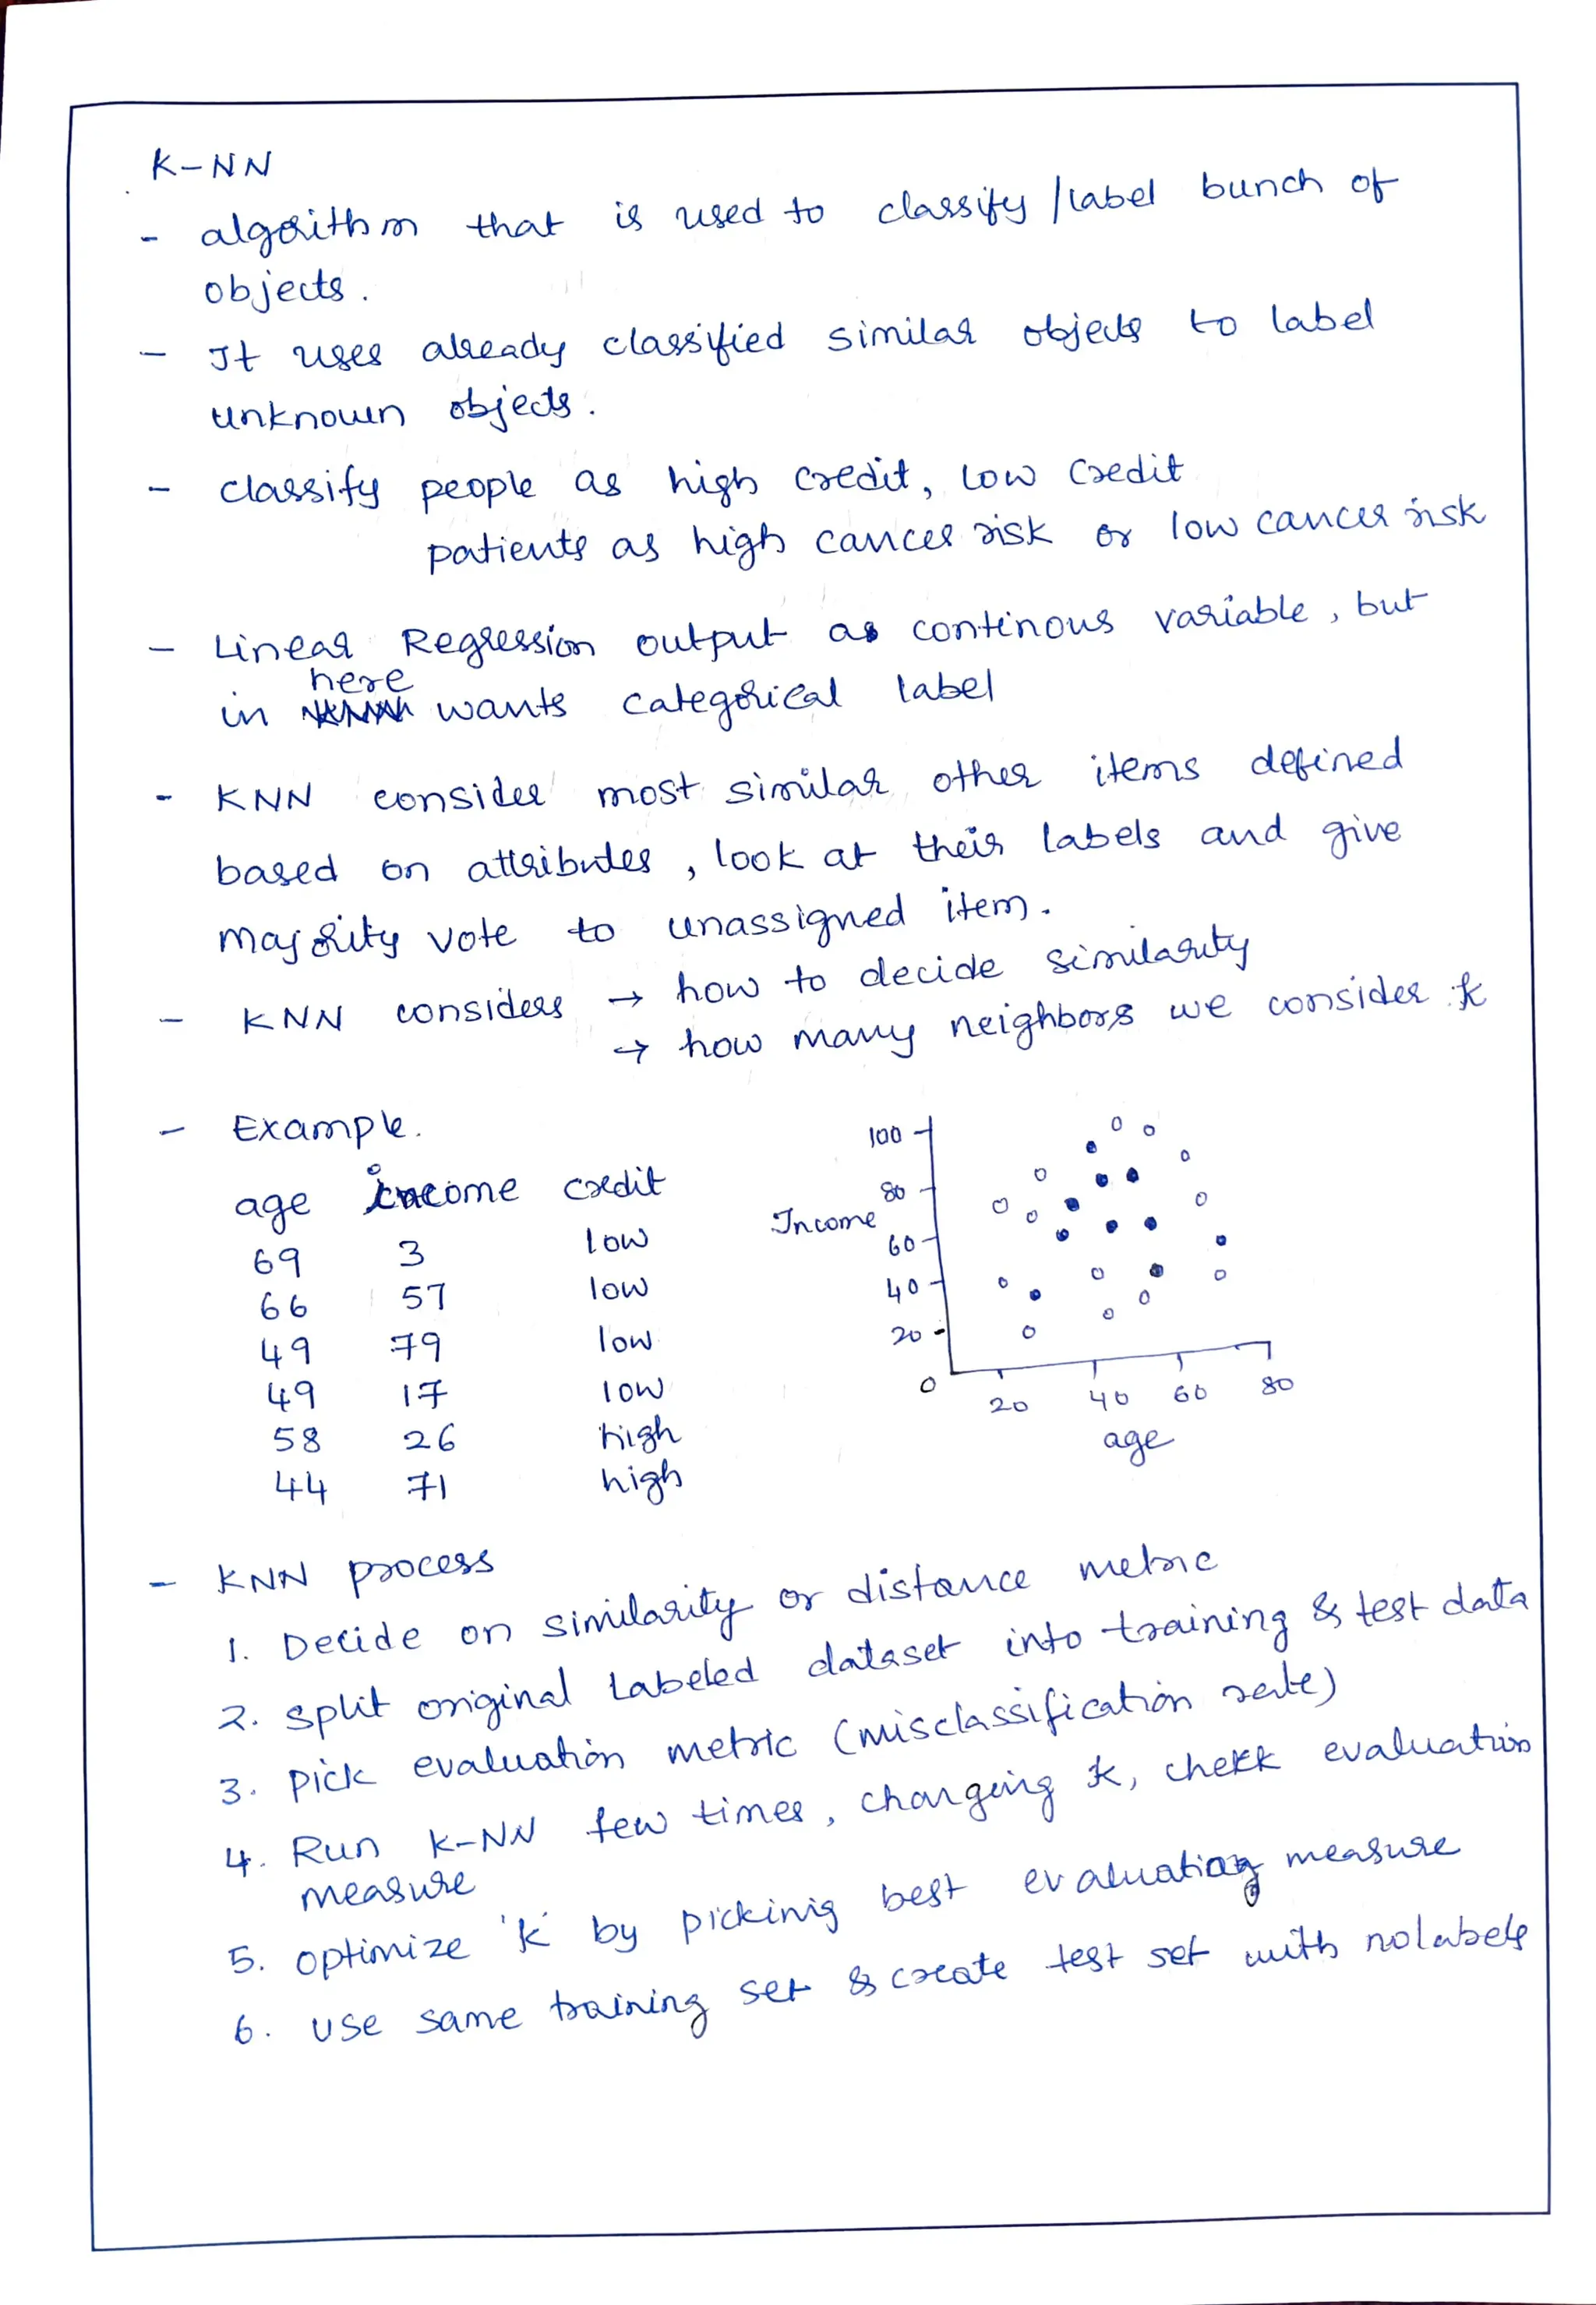 K-NN
- algorithm that is used to classify /label bunch of
objects.
- It uses already classified similar objects to label
unknown objects.
- classify people as high credit, low credit
patients as high cancer risk or low cancer risk
- Linear Regression output as continous variable, but
here
in wants categorical label
- KNN consider most similar other items defined
based on attributes, look at their labels and give
majority vote to unassigned item.
- KNN considers → how to decide similarity
→ how many neighbors we consider k
- Example.
age income credit
69 3 low
66 57 low
49 79 low
49 17 low
58 26 high
44 71 high
100
80
Income
60
40
20
0
20 40 60 80
age
- KNN process
1. Decide on similarity or distance metric
2. split original Labeled dataset into training & test data
3. pick evaluation metric (misclassification rate)
4. Run K-NN few times, changing k, chekk evaluation
measure
5. optimize 'k' by picking best evaluation measure
6. use same training set & create test set with nolabels